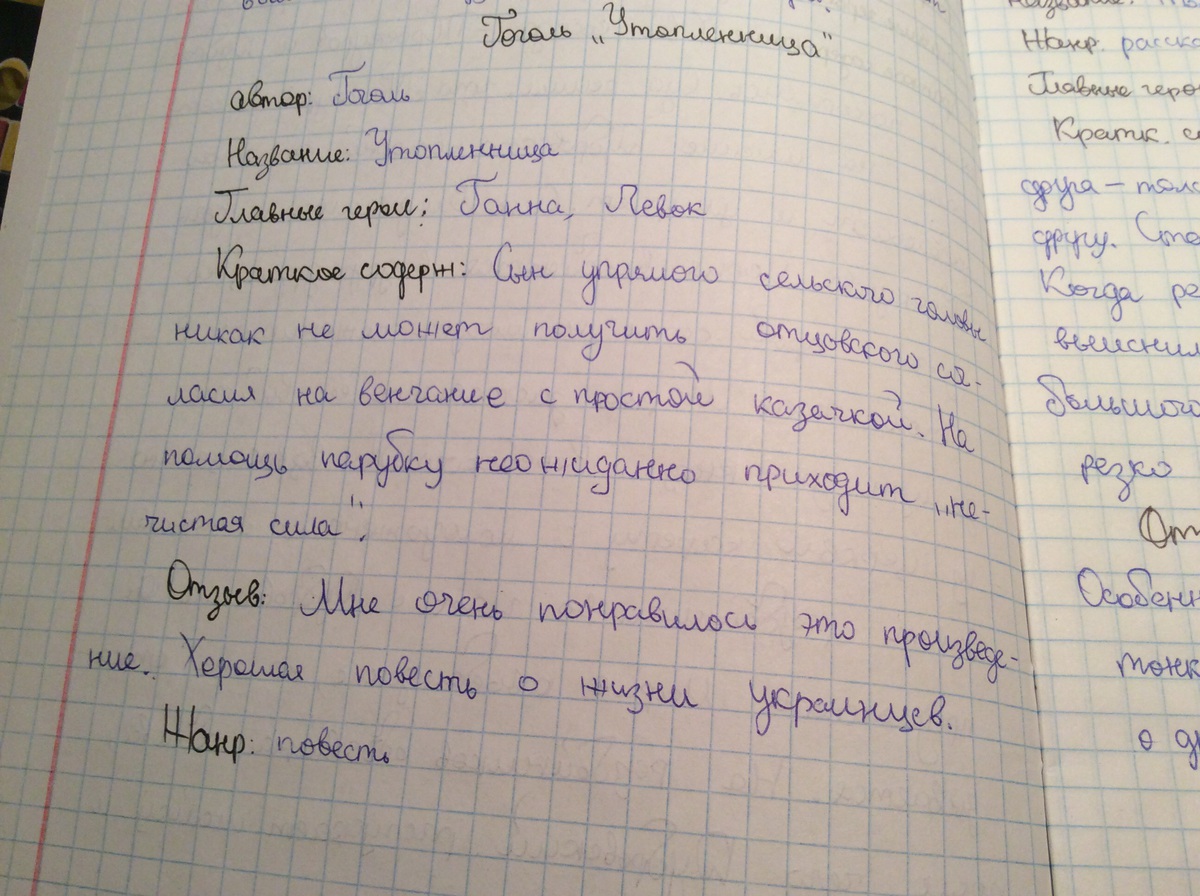 Гоголь „Утопленница"
автор: Гоголь
Название: Утопленница
Главные герои: Ганна, Левок
Краткое содерж: Сын упрямого сельского головы
никак не может получить отцовского со-
ласия на венчание с простой казачкой. На
помощь парубку неожиданно приходит „не-
чистая сила".
Отзыв: Мне очень понравилось это произведе-
ние. Хорошая повесть о жизни украинцев.
Жанр: повесть
Жанр. расска
Главные геро
Кратк. с
друга – тол
другу. Ста
Когда ре
выяснил
большого
резко
От
Особенн
тонк
о др